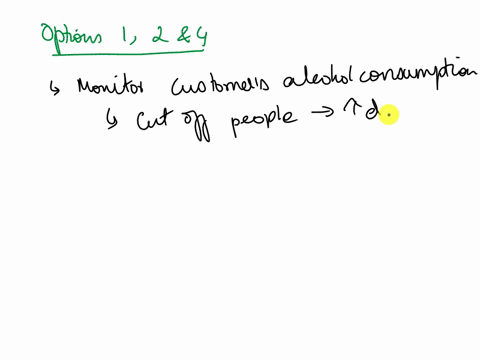 Options 1, 2 & 4
↳ Monitor customers alcohol consumption
↳ cut off people → ↑ d